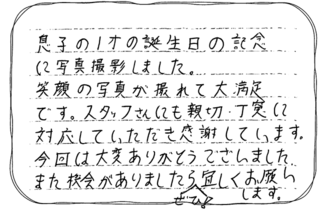 息子の1才の誕生日の記念
に写真撮影しました。
笑顔の写真が撮れて大満足
です。スタッフさんにも親切・丁寧に
対応していただき感謝しています。
今回は大変ありがとうございました
また機会がありましたら宜しくお願い
ぜひ!
します。